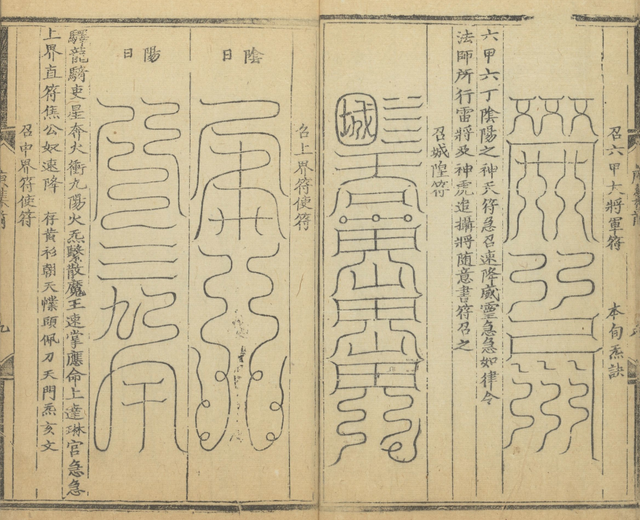 召六甲大將軍符
本旬炁訣
六甲六丁陰陽之神天符急召速降威靈急急如律令
法師所行雷將及神虎追攝將隨意書符召之
召城隍符
城
召上界符使符
陰日
陽日
驛龍騎吏星奔火衝九陽火炁緊散魔王速掌應命上達琳宮急急
上界直符焦公奴速降
存黃衫朝天幞頭佩刀天門炁亥文
召中界符使符
九